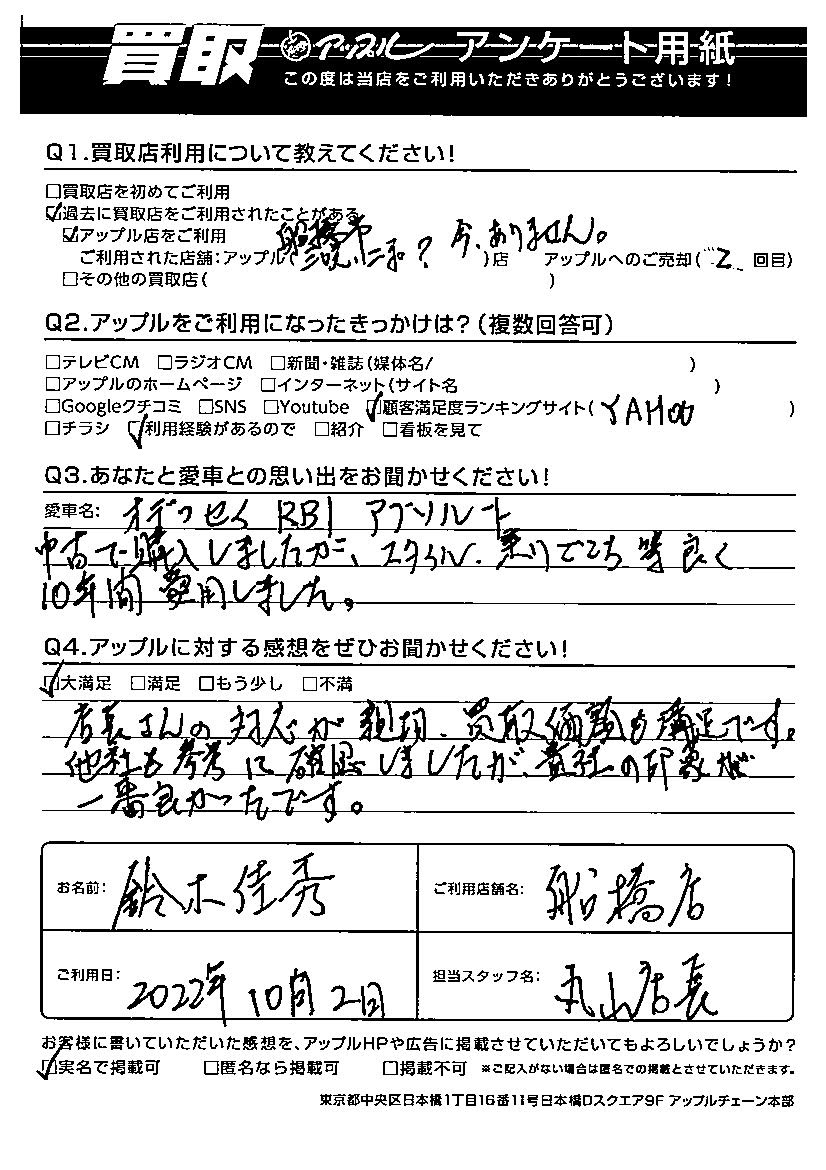 買取 アップル アンケート用紙
この度は当店をご利用いただきありがとうございます!
Q1.買取店利用について教えてください!
□買取店を初めてご利用
☑過去に買取店をご利用されたことがある
☑アップル店をご利用 船橋市 今、ありません。
ご利用された店舗:アップル( ? )店 アップルへのご売却( 2 回目)
□その他の買取店( )
Q2.アップルをご利用になったきっかけは?(複数回答可)
□テレビCM □ラジオCM □新聞・雑誌(媒体名/ )
□アップルのホームページ □インターネット(サイト名 )
□Googleクチコミ □SNS □Youtube ☑顧客満足度ランキングサイト( YAHOO )
□チラシ ☑利用経験があるので □紹介 □看板を見て
Q3.あなたと愛車との思い出をお聞かせください!
愛車名: オデッセイ RB1 アブソルート
中古で購入しましたが、スタイル、乗りごこち 良く
10年間 愛用しました。
Q4.アップルに対する感想をぜひお聞かせください!
☑大満足 □満足 □もう少し □不満
店長さんの対応が親切、買取価額も満足です。
他社も参考に確認しましたが、貴社の印象が
一番良かったです。
お名前: 鈴木佳秀 ご利用店舗名: 船橋店
ご利用日: 2022年10月2日 担当スタッフ名: 丸山店長
お客様に書いていただいた感想を、アップルHPや広告に掲載させていただいてもよろしいでしょうか?
☑実名で掲載可 □匿名なら掲載可 □掲載不可 ※ご記入がない場合は匿名での掲載とさせていただきます。
東京都中央区日本橋1丁目16番11号日本橋Dスクエア9F アップルチェーン本部